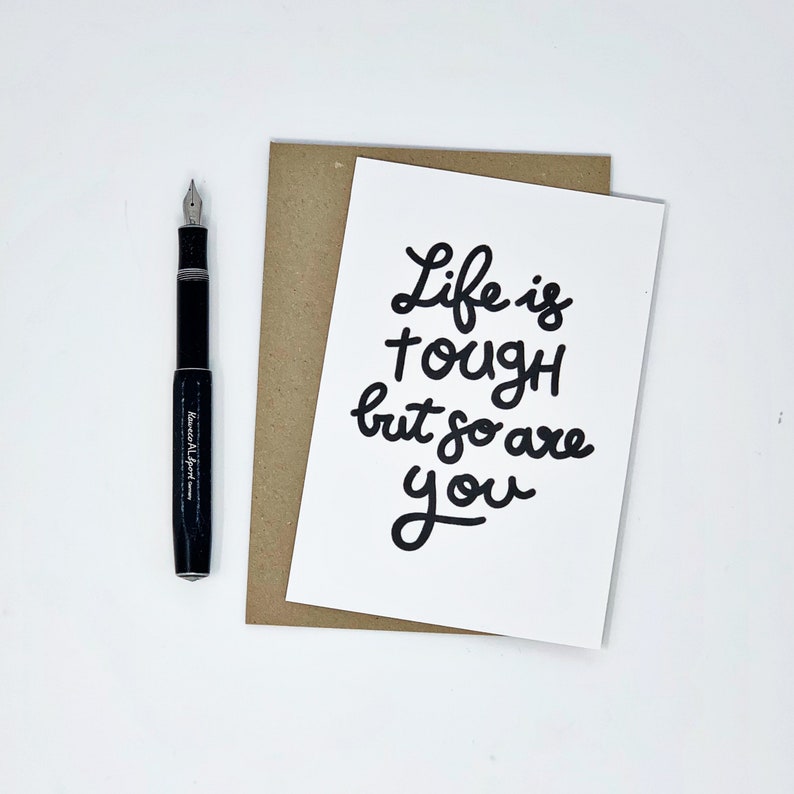 Kaweco AL Sport Germany
Life is
TOUGH
but so are
you